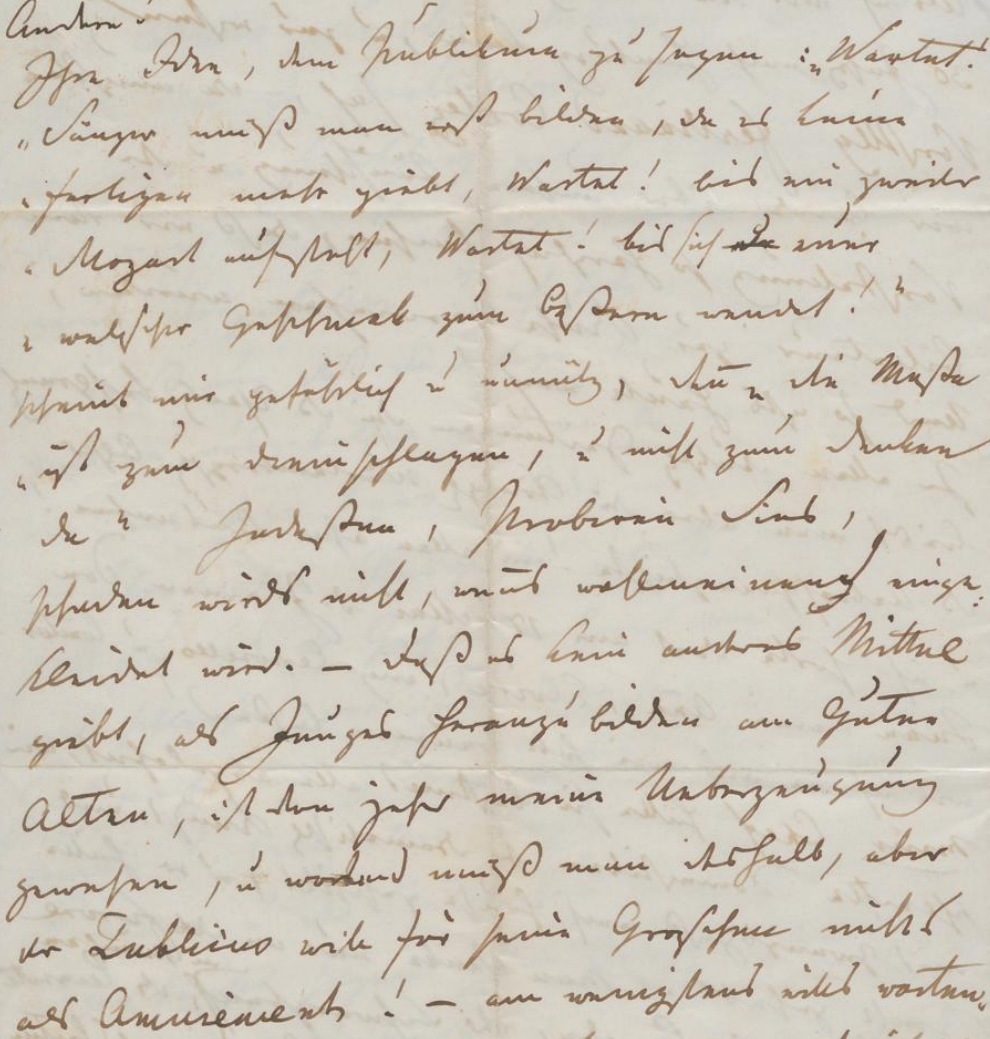 Andern!
Ihre Idee, dem Publikum zu sagen: „Wartet!
„Sänger muß man erst bilden, da es keine
„fertigen mehr giebt, Wartet! bis ein zweiter
„Mozart aufsteht, Wartet! bis sich euer
„welscher Geschmack zum beßern wendet!"
scheint mir gefährlich u unnütz, deñ „die Maße
„ist zum dreinschlagen, u nicht zum denken
da" Indeßen, Probiren Sies,
schaden wirds nicht, weñs wohlmeinend einge:
kleidet wird. — Daß es kein anderes Mittel
giebt, als Junges heranzubilden am Guten
Alten, ist von jeher meine Ueberzeugung
gewesen, u muß man deshalb, aber
der Publicus will für seine Groschen nichts
als Amusement! — am wenigstens wills warten.